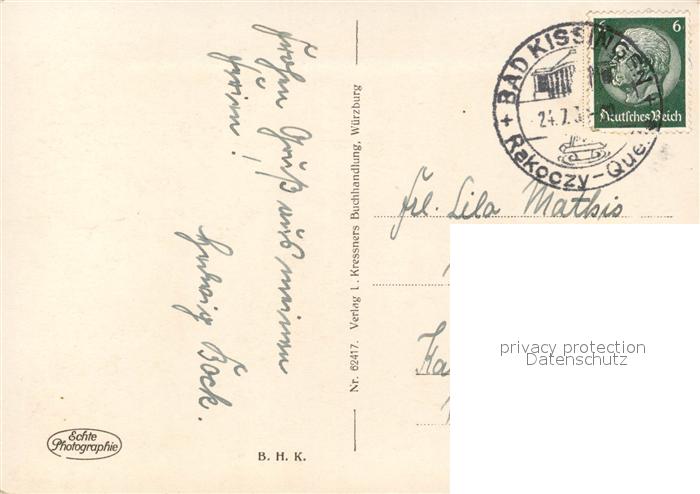 Frohen Gruß aus meinem
Heim!
Hedwig Bock.
Nr. 62417. Verlag L. Kressners Buchhandlung, Würzburg
Echte
Photographie
B. H. K.
+ BAD KISSINGEN +
24.7.3
Rakoczy-Que
6 6
Deutsches Reich
Frl. Lila Mathis
Ka
privacy protection
Datenschutz